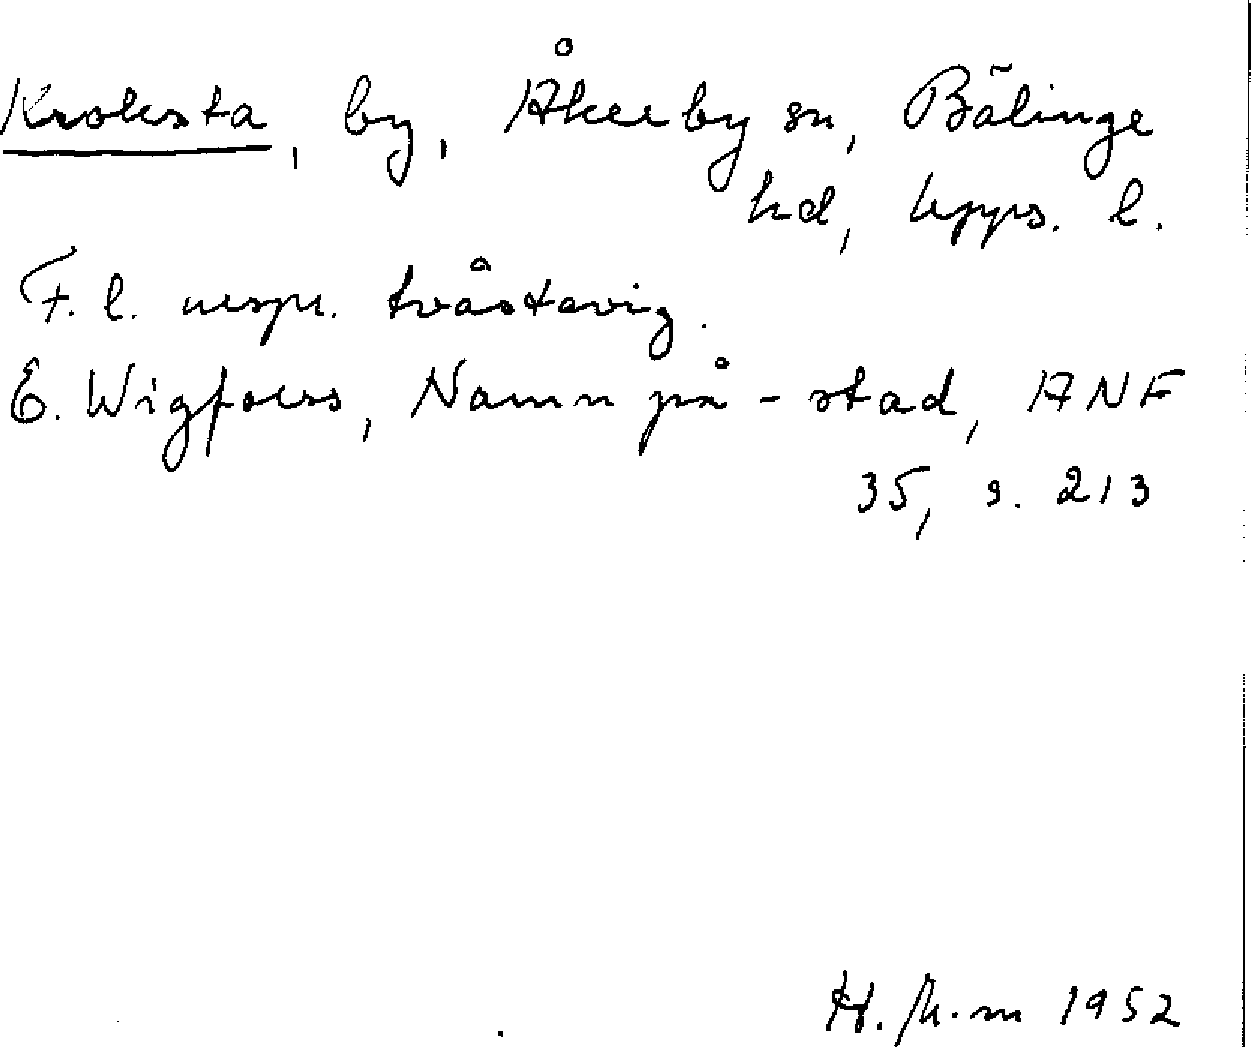 Kroksta, by, Åkerby sn, Bälinge
hd, Upps. l.
F. l. urspr. tvåstavig.
E. Wigforss, Namn på -stad, ANF
35, s. 213
1952